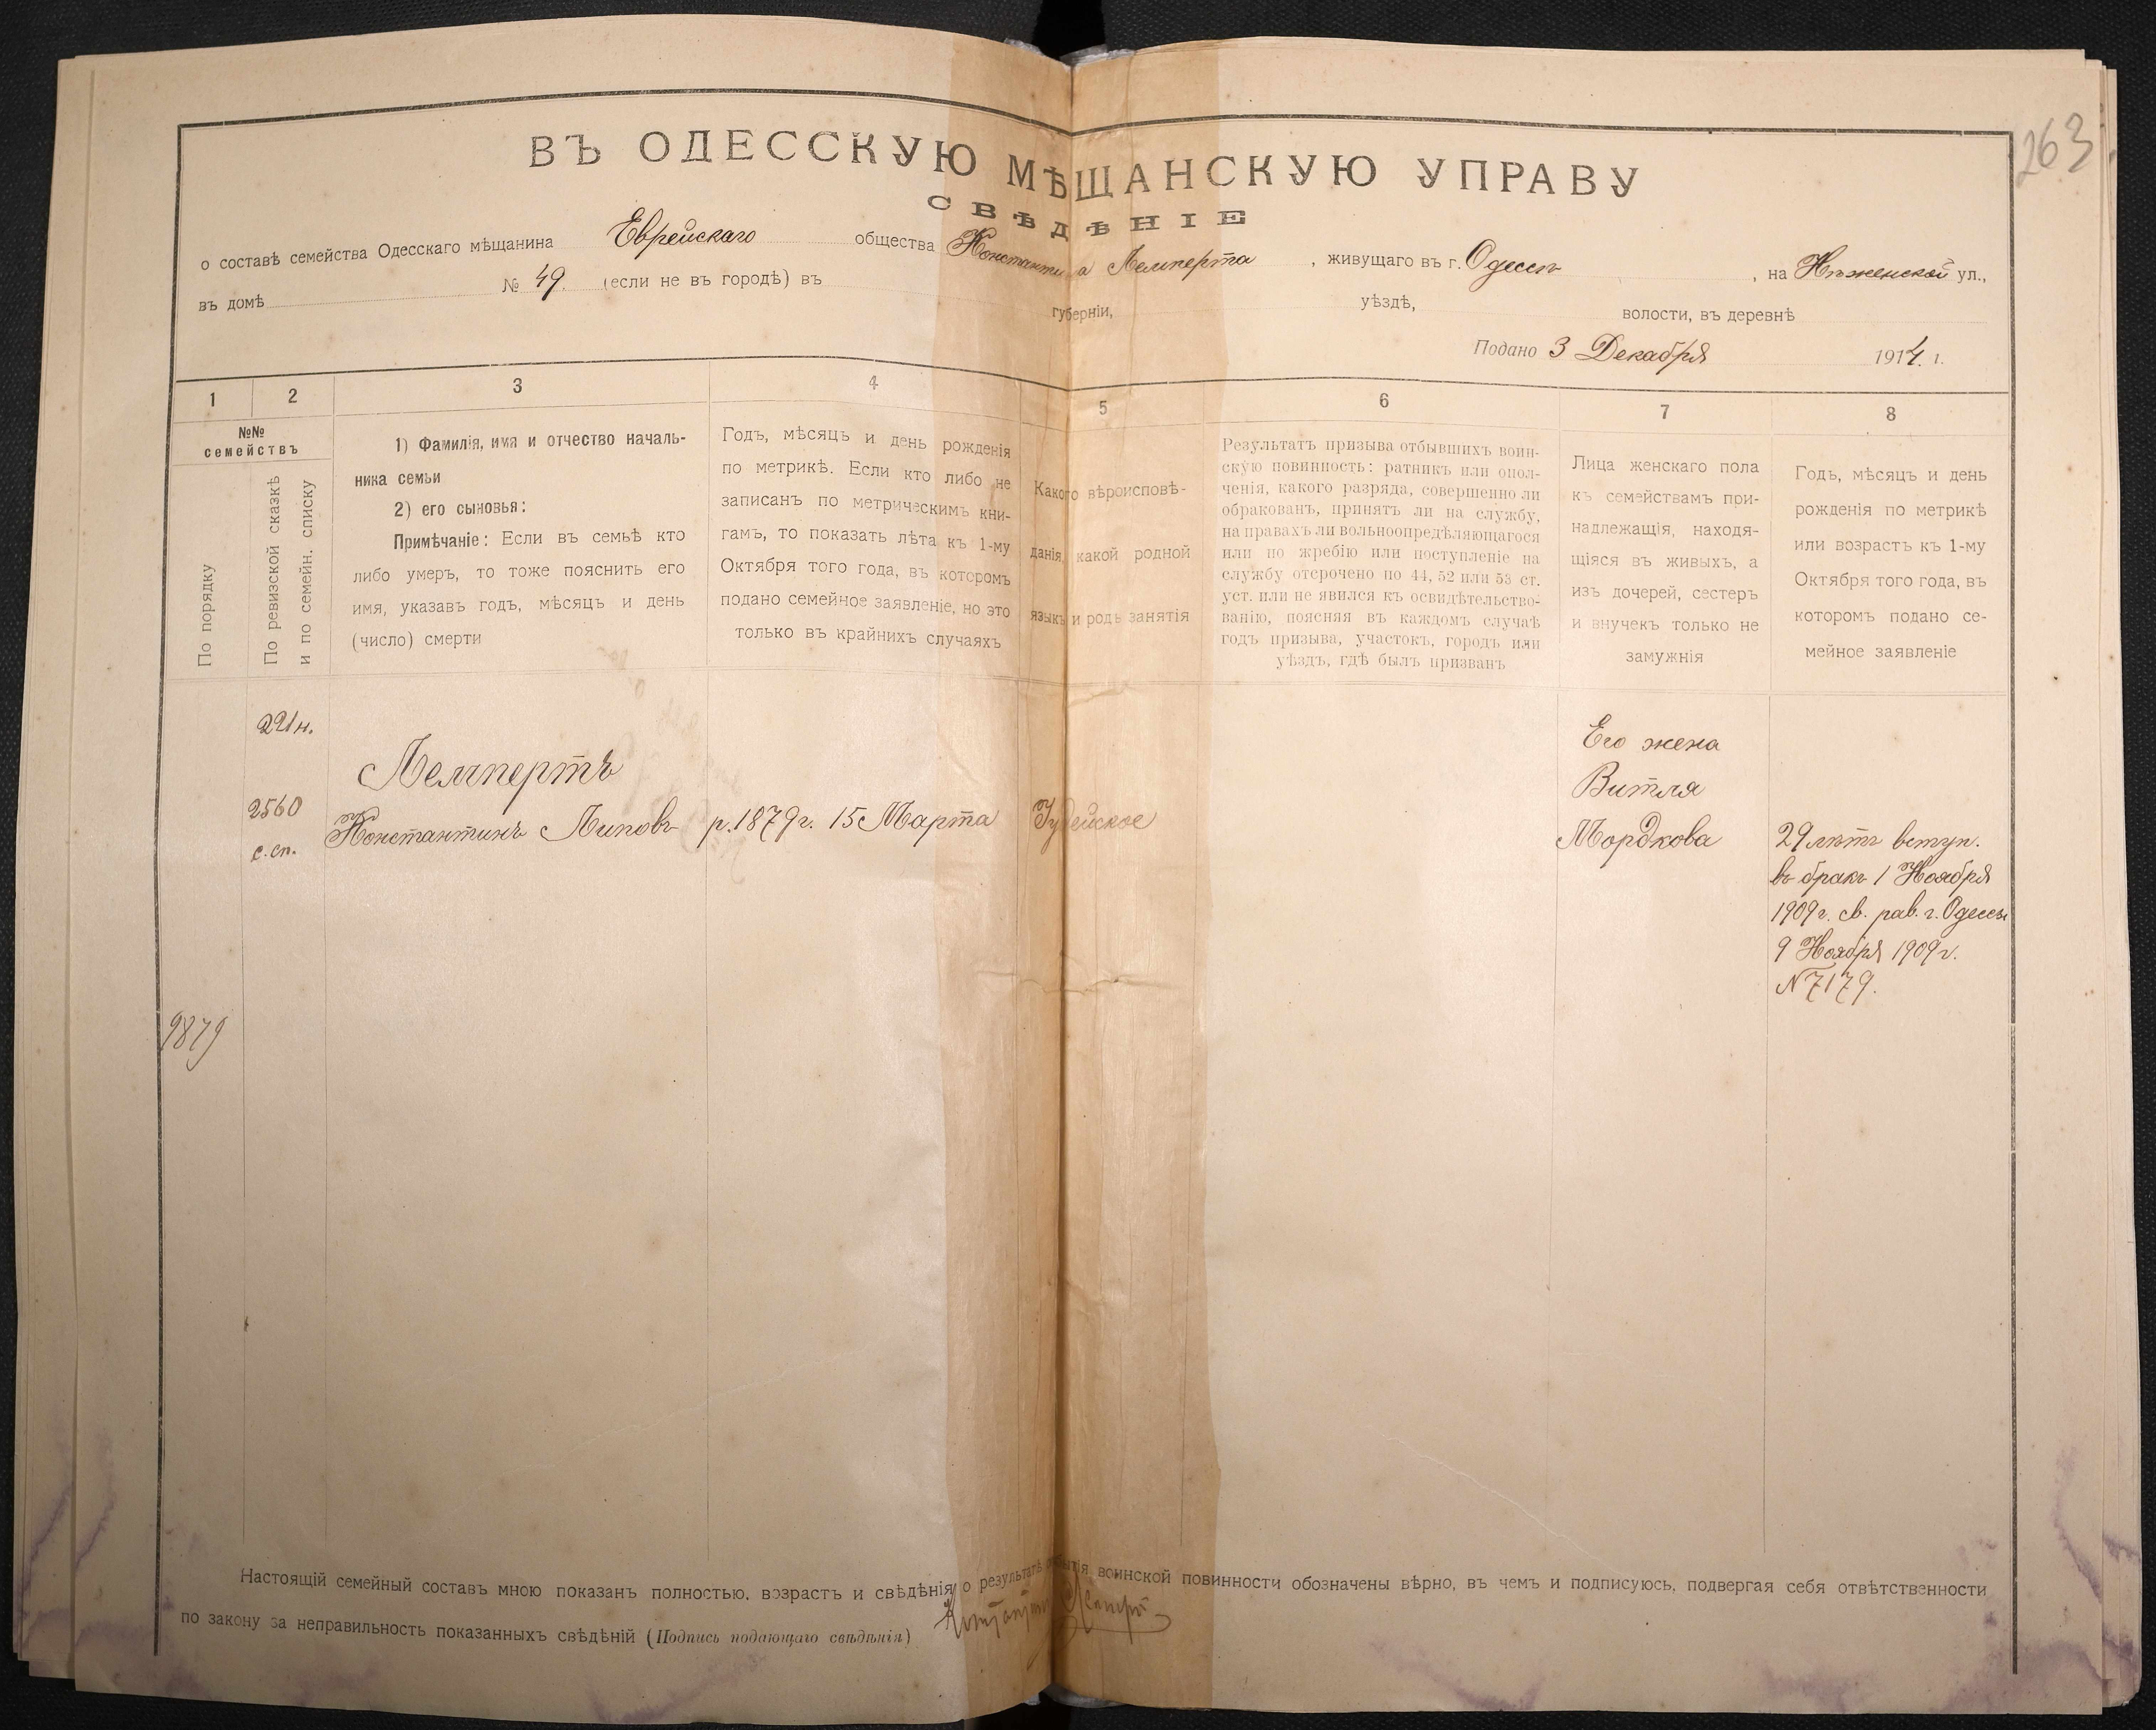 263
ВЪ ОДЕССКУЮ МѢЩАНСКУЮ УПРАВУ
СВѢДѢНІЕ
о составѣ семейства Одесскаго мѣщанина Еврейскаго общества Константина Лемперта, живущаго въ г. Одессѣ, на Нѣженской ул.,
въ домѣ № 49. (если не въ городѣ) въ губерніи, уѣздѣ, волости, въ деревнѣ
Подано 3 Декабря 1914 г.
1 2 3 4 5 6 7 8
№№
семействъ
По порядку
По ревизской сказкѣ
и по семейн. списку
1) Фамилія, имя и отчество началь-
ника семьи
2) его сыновья:
Примѣчаніе: Если въ семьѣ кто
либо умеръ, то тоже пояснить его
имя, указавъ годъ, мѣсяцъ и день
(число) смерти
Годъ, мѣсяцъ и день рожденія
по метрикѣ. Если кто либо не
записанъ по метрическимъ кни-
гамъ, то показать лѣта къ 1-му
Октября того года, въ которомъ
подано семейное заявленіе, но это
только въ крайнихъ случаяхъ
Какого вѣроисповѣ-
данія, какой родной
языкъ и родъ занятія
Результатъ призыва отбывшихъ воин-
скую повинность: ратникъ или опол-
ченія, какого разряда, совершенно ли
обракованъ, принятъ ли на службу,
на правахъ ли вольноопредѣляющагося
или по жребію или поступленіе на
службу отсрочено по 44, 52 или 53 ст.
уст. или не явился къ освидѣтельство-
ванію, поясняя въ каждомъ случаѣ
годъ призыва, участокъ, городъ или
уѣздъ, гдѣ былъ призванъ
Лица женскаго пола
къ семействамъ при-
надлежащія, находя-
щіяся въ живыхъ, а
изъ дочерей, сестеръ
и внучекъ только не
замужнія
Годъ, мѣсяцъ и день
рожденія по метрикѣ
или возрастъ къ 1-му
Октября того года, въ
которомъ подано се-
мейное заявленіе
221н.
2560
с.сп.
Лемпертъ
Константинъ Липовъ р. 1879г. 15 Марта Іудейское
Его жена
Витля
Мордкова
29 лѣтъ вступ.
въ бракъ 1 Ноября
1909г. св. рав. г. Одессы
9 Ноября 1909г.
N 7179.
9879
Настоящій семейный составъ мною показанъ полностью, возрастъ и свѣдѣнія о результатѣ отбытія воинской повинности обозначены вѣрно, въ чемъ и подписуюсь, подвергая себя отвѣтственности
по закону за неправильность показанныхъ свѣдѣній (Подпись подающаго свѣдѣнія)